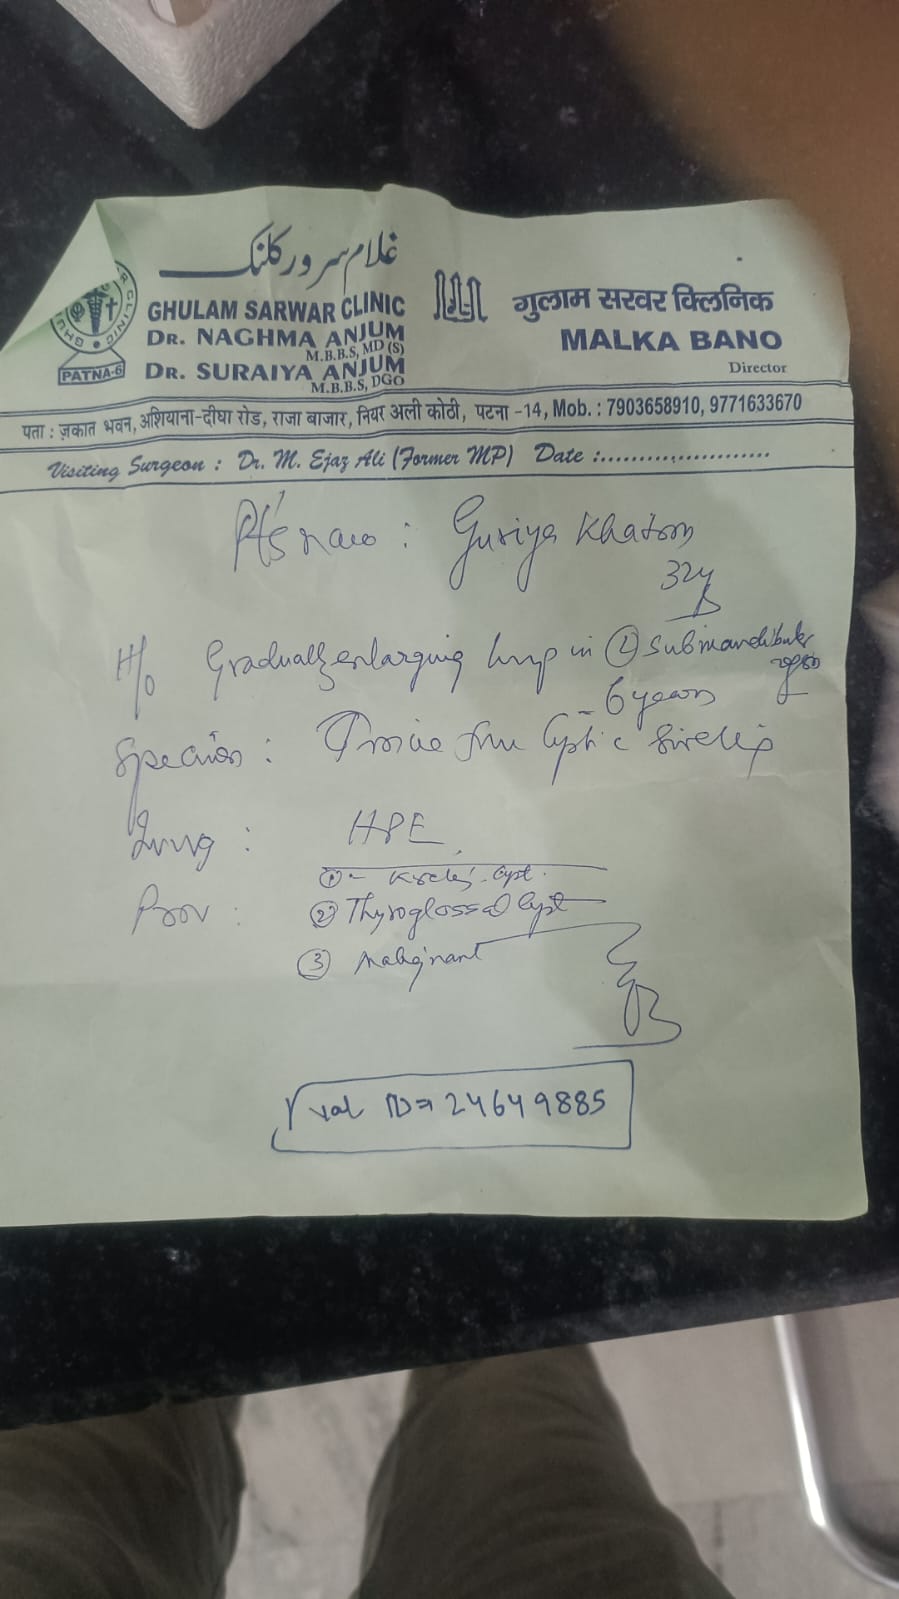 غلام سرور کلنک
GHULAM SARWAR CLINIC
DR. NAGHMA ANJUM
M.B.B.S, MD (S)
DR. SURAIYA ANJUM
M.B.B.S, DGO
PATNA-6
गुलाम सरवर क्लिनिक
MALKA BANO
Director
पता : ज़कात भवन, अशियाना-दीघा रोड, राजा बाजार, नियर अली कोठी, पटना -14, Mob. : 7903658910, 9771633670
Visiting Surgeon : Dr. M. Ejaz Ali (Former MP) Date :.......................
Pt's : Guriya Khatoon
32y
H/o Gradually enlarging lump in (L) submandibular
- 6 years
: Cystic
: HPE
① - cyst
Prov : ② Thyroglossal Cyst
③ Malignant
ID = 24649885